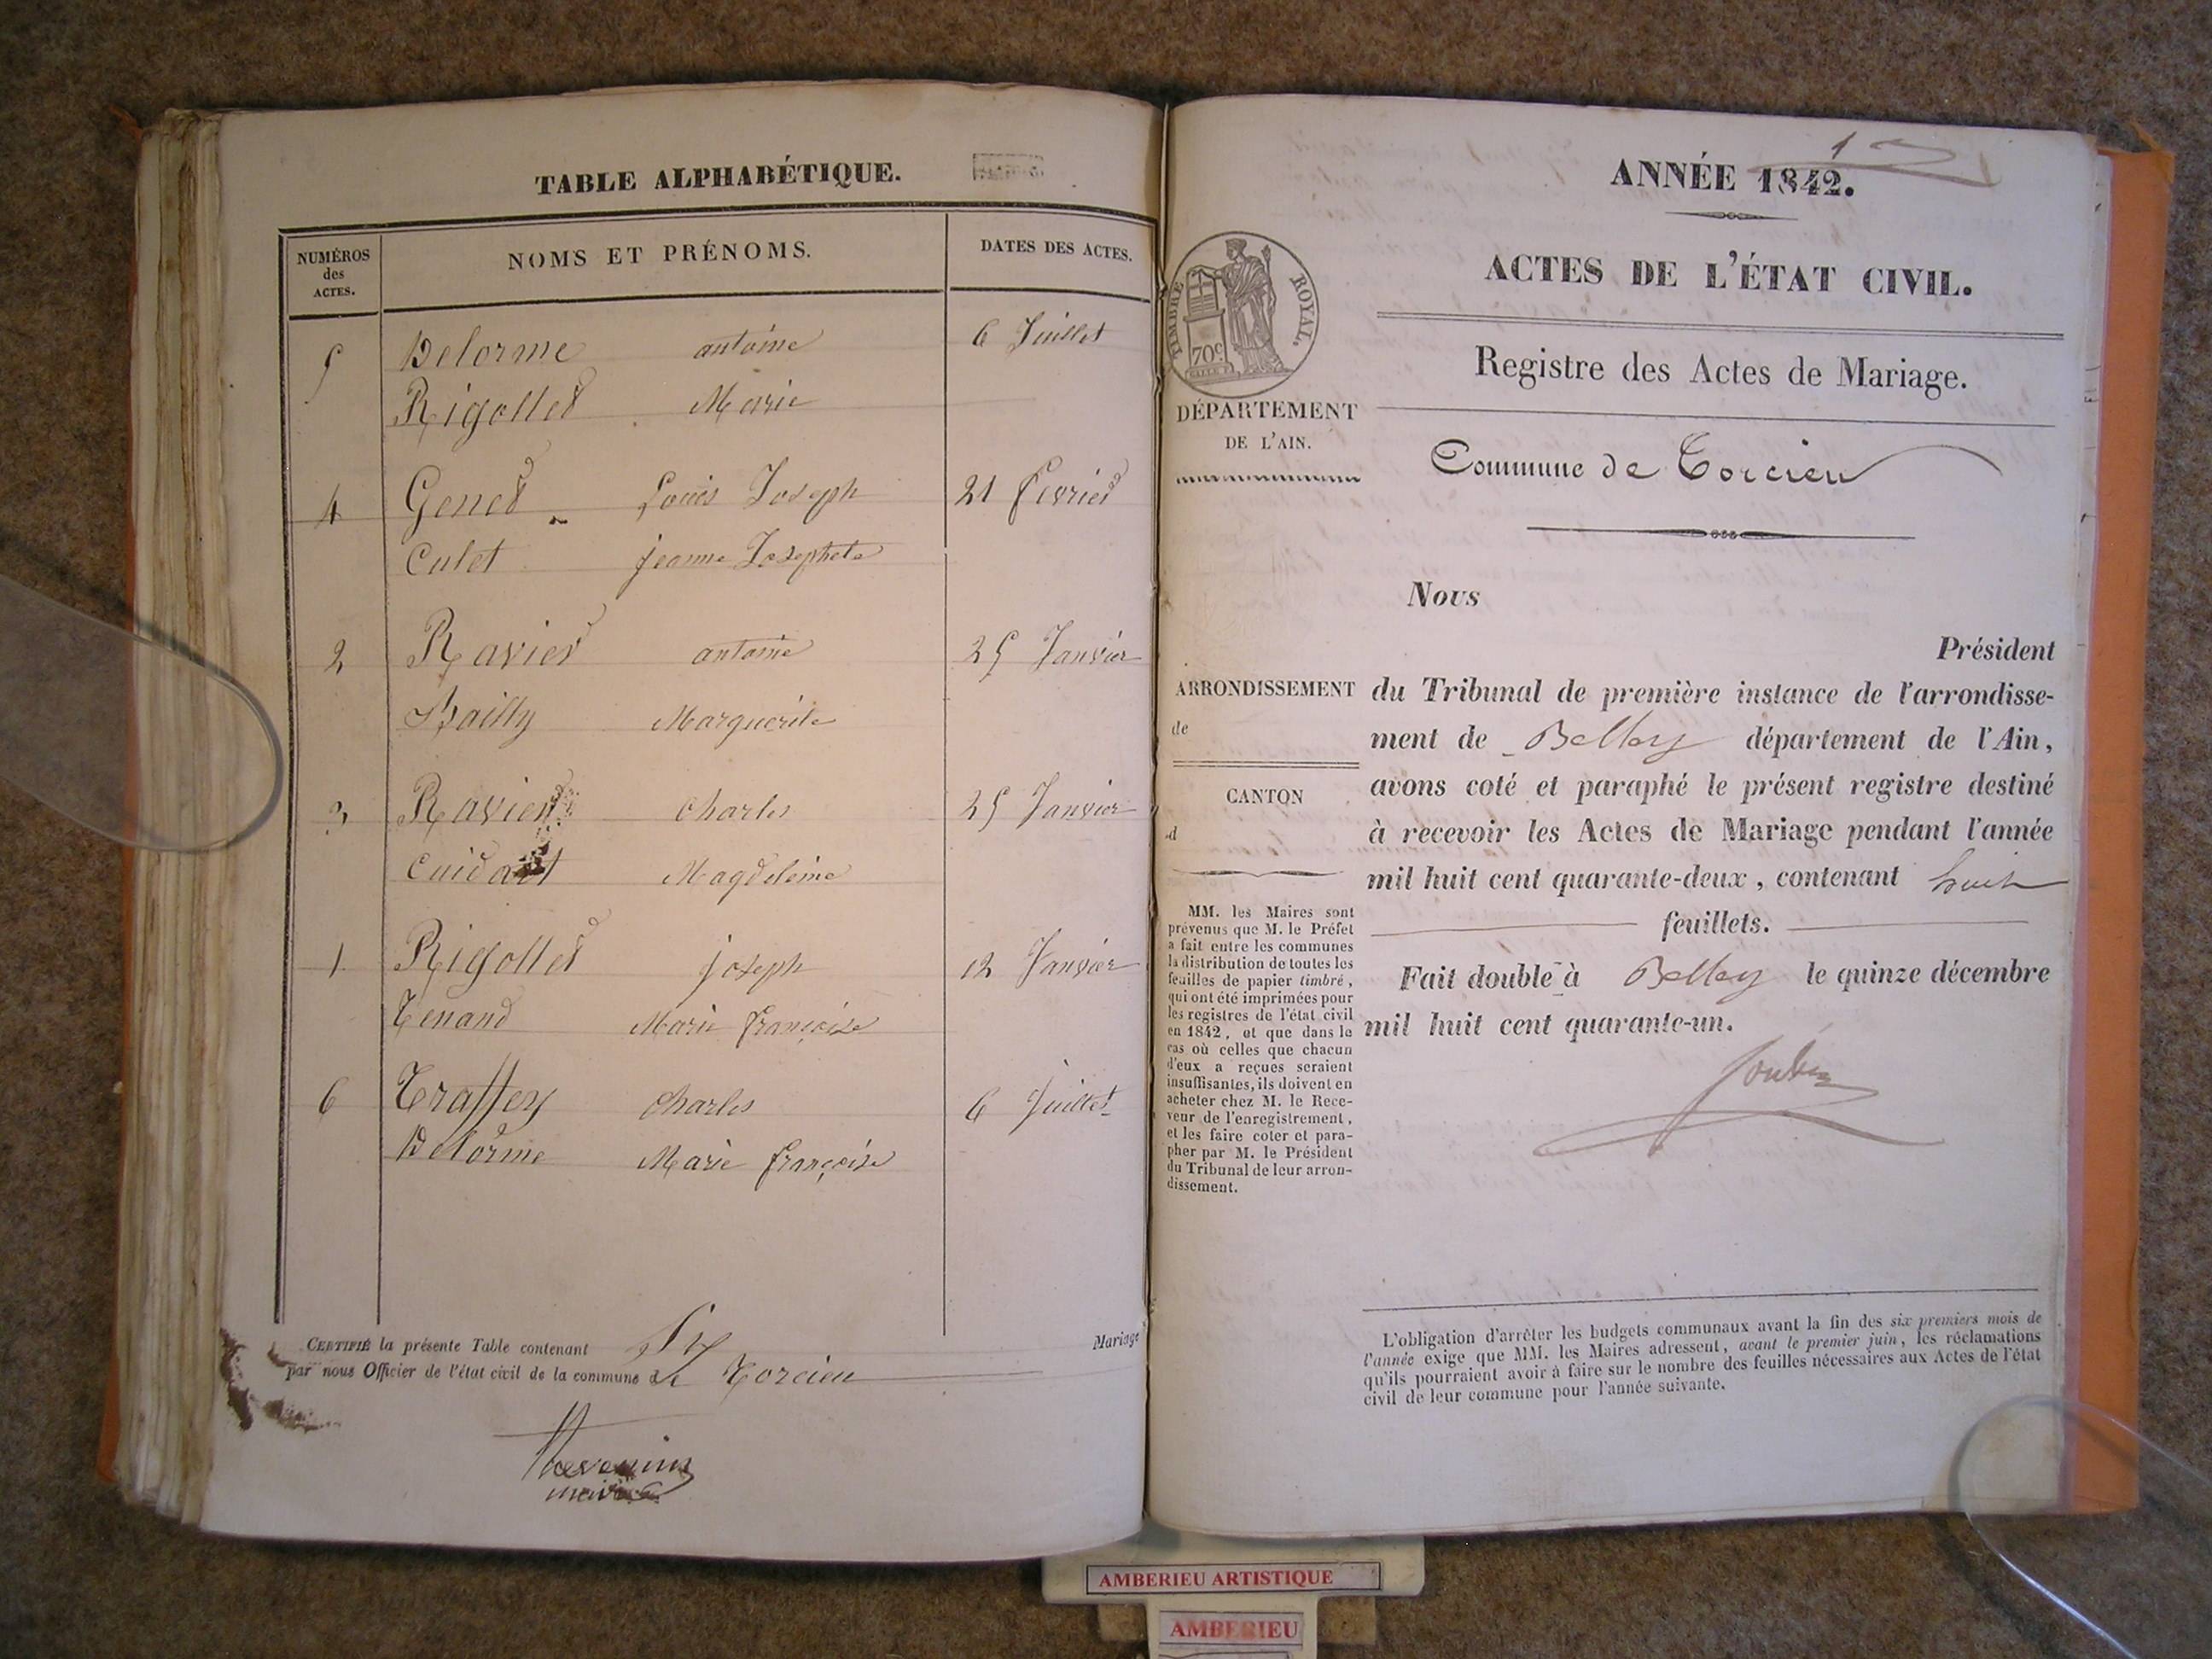 TABLE ALPHABÉTIQUE.
NUMÉROS
des
ACTES.
NOMS ET PRÉNOMS.
DATES DES ACTES.
5 Delorme antoine 6 Juillet
Rigollet Marie
4 Genet Louis Joseph 21 fevrier
Culet jeanne Josephete
2 Ravier antoine 25 Janvier
Bailly Marguerite
3 Ravier Charles 25 Janvier
Magdeleine
1 Rigollet joseph 12 Janvier
Tenand Marie françoise
6 Traffey Charles 6 Juillet
Delorme Marie françoise
CERTIFIÉ la présente Table contenant Six Mariage
par nous Officier de l'état civil de la commune de Torcieu
Thevenin
maire
ANNÉE 1842.
1
ACTES DE L'ÉTAT CIVIL.
TIMBRE ROYAL.
70c
Registre des Actes de Mariage.
DÉPARTEMENT
DE L'AIN.
Commune de Torcieu
Nous
Président
ARRONDISSEMENT
de
CANTON
d
du Tribunal de première instance de l'arrondisse-
ment de Belley département de l'Ain,
avons coté et paraphé le présent registre destiné
à recevoir les Actes de Mariage pendant l'année
mil huit cent quarante-deux, contenant huit
feuillets.
Fait double à Belley le quinze décembre
mil huit cent quarante-un.
MM. les Maires sont
prévenus que M. le Préfet
a fait entre les communes
la distribution de toutes les
feuilles de papier timbré,
qui ont été imprimées pour
les registres de l'état civil
en 1842, et que dans le
cas où celles que chacun
d'eux a reçues seraient
insuffisantes, ils doivent en
acheter chez M. le Rece-
veur de l'enregistrement,
et les faire coter et para-
pher par M. le Président
du Tribunal de leur arron-
dissement.
L'obligation d'arrêter les budgets communaux avant la fin des six premiers mois de
l'année exige que MM. les Maires adressent, avant le premier juin, les réclamations
qu'ils pourraient avoir à faire sur le nombre des feuilles nécessaires aux Actes de l'état
civil de leur commune pour l'année suivante.
AMBERIEU ARTISTIQUE
AMBERIEU